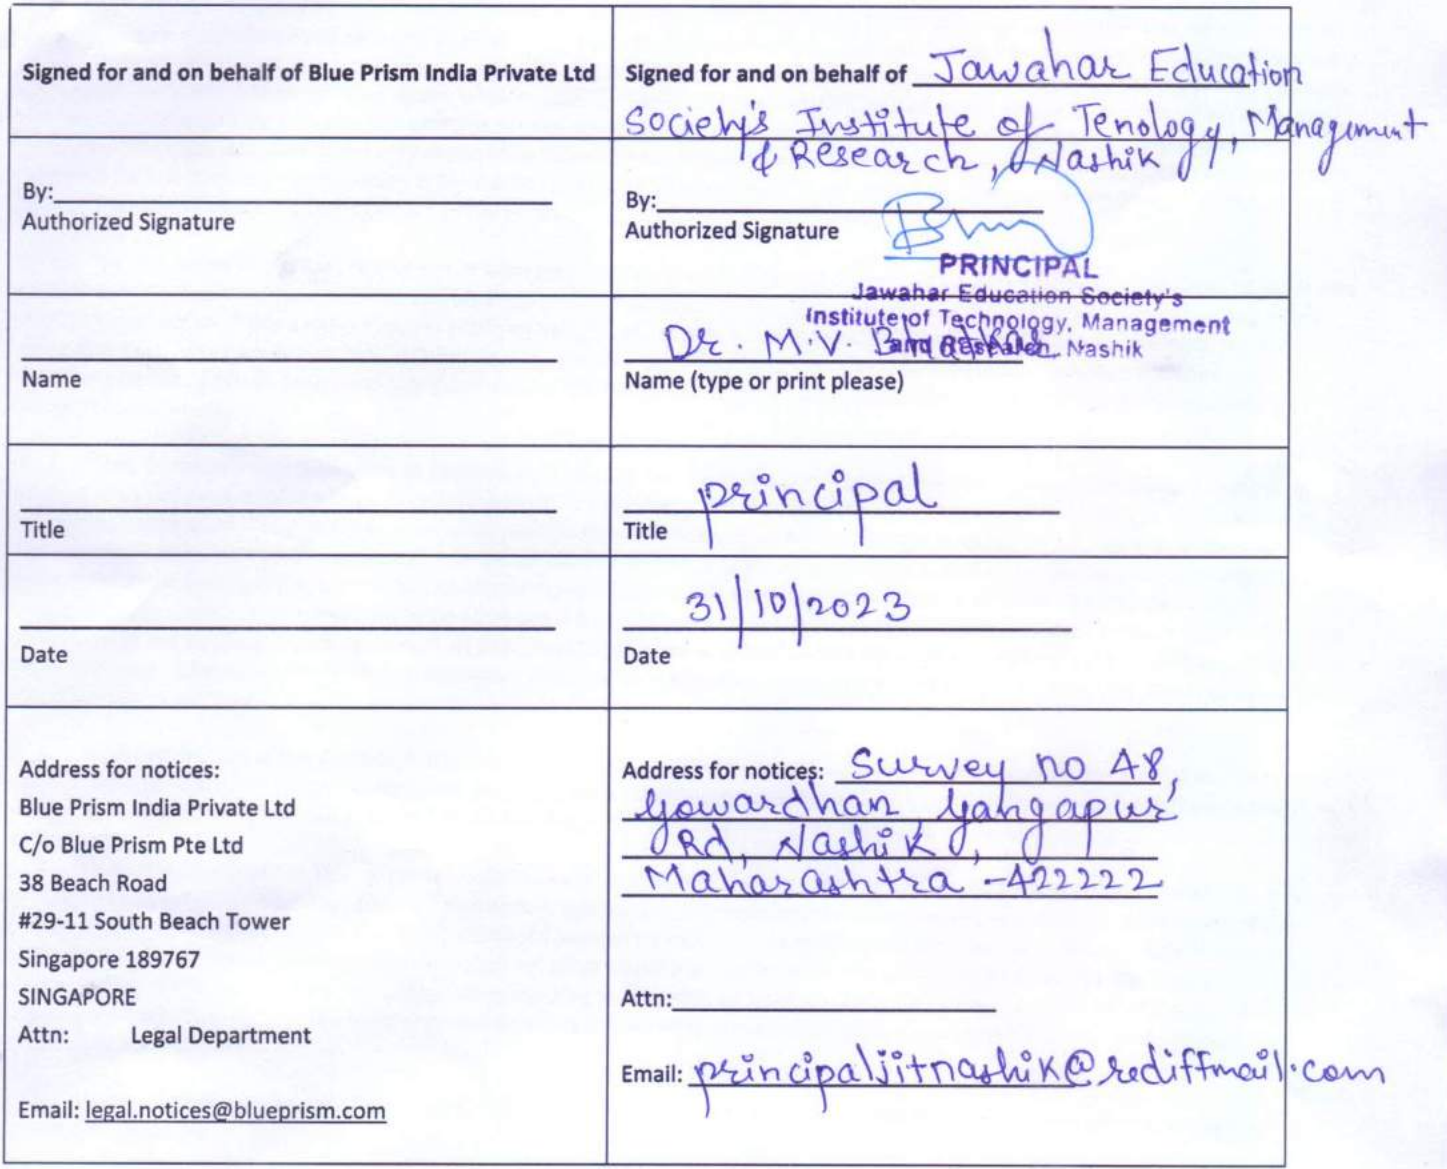 Signed for and on behalf of Blue Prism India Private Ltd
Signed for and on behalf of Jawahar Education
Society's Institute of Tenology, Management
& Research, Nashik
By:
Authorized Signature
By:
Authorized Signature
PRINCIPAL
Jawahar Education Society's
Institute of Technology, Management
and Research, Nashik
Name
Dr. M.V.
Name (type or print please)
Title
principal
Title
Date
31/10/2023
Date
Address for notices:
Blue Prism India Private Ltd
C/o Blue Prism Pte Ltd
38 Beach Road
#29-11 South Beach Tower
Singapore 189767
SINGAPORE
Attn: Legal Department
Email: legal.notices@blueprism.com
Address for notices: Survey no 48,
Gowardhan, Gangapur
Rd, Nashik,
Maharashtra -422222
Attn:
Email: principaljitnashik@rediffmail.com